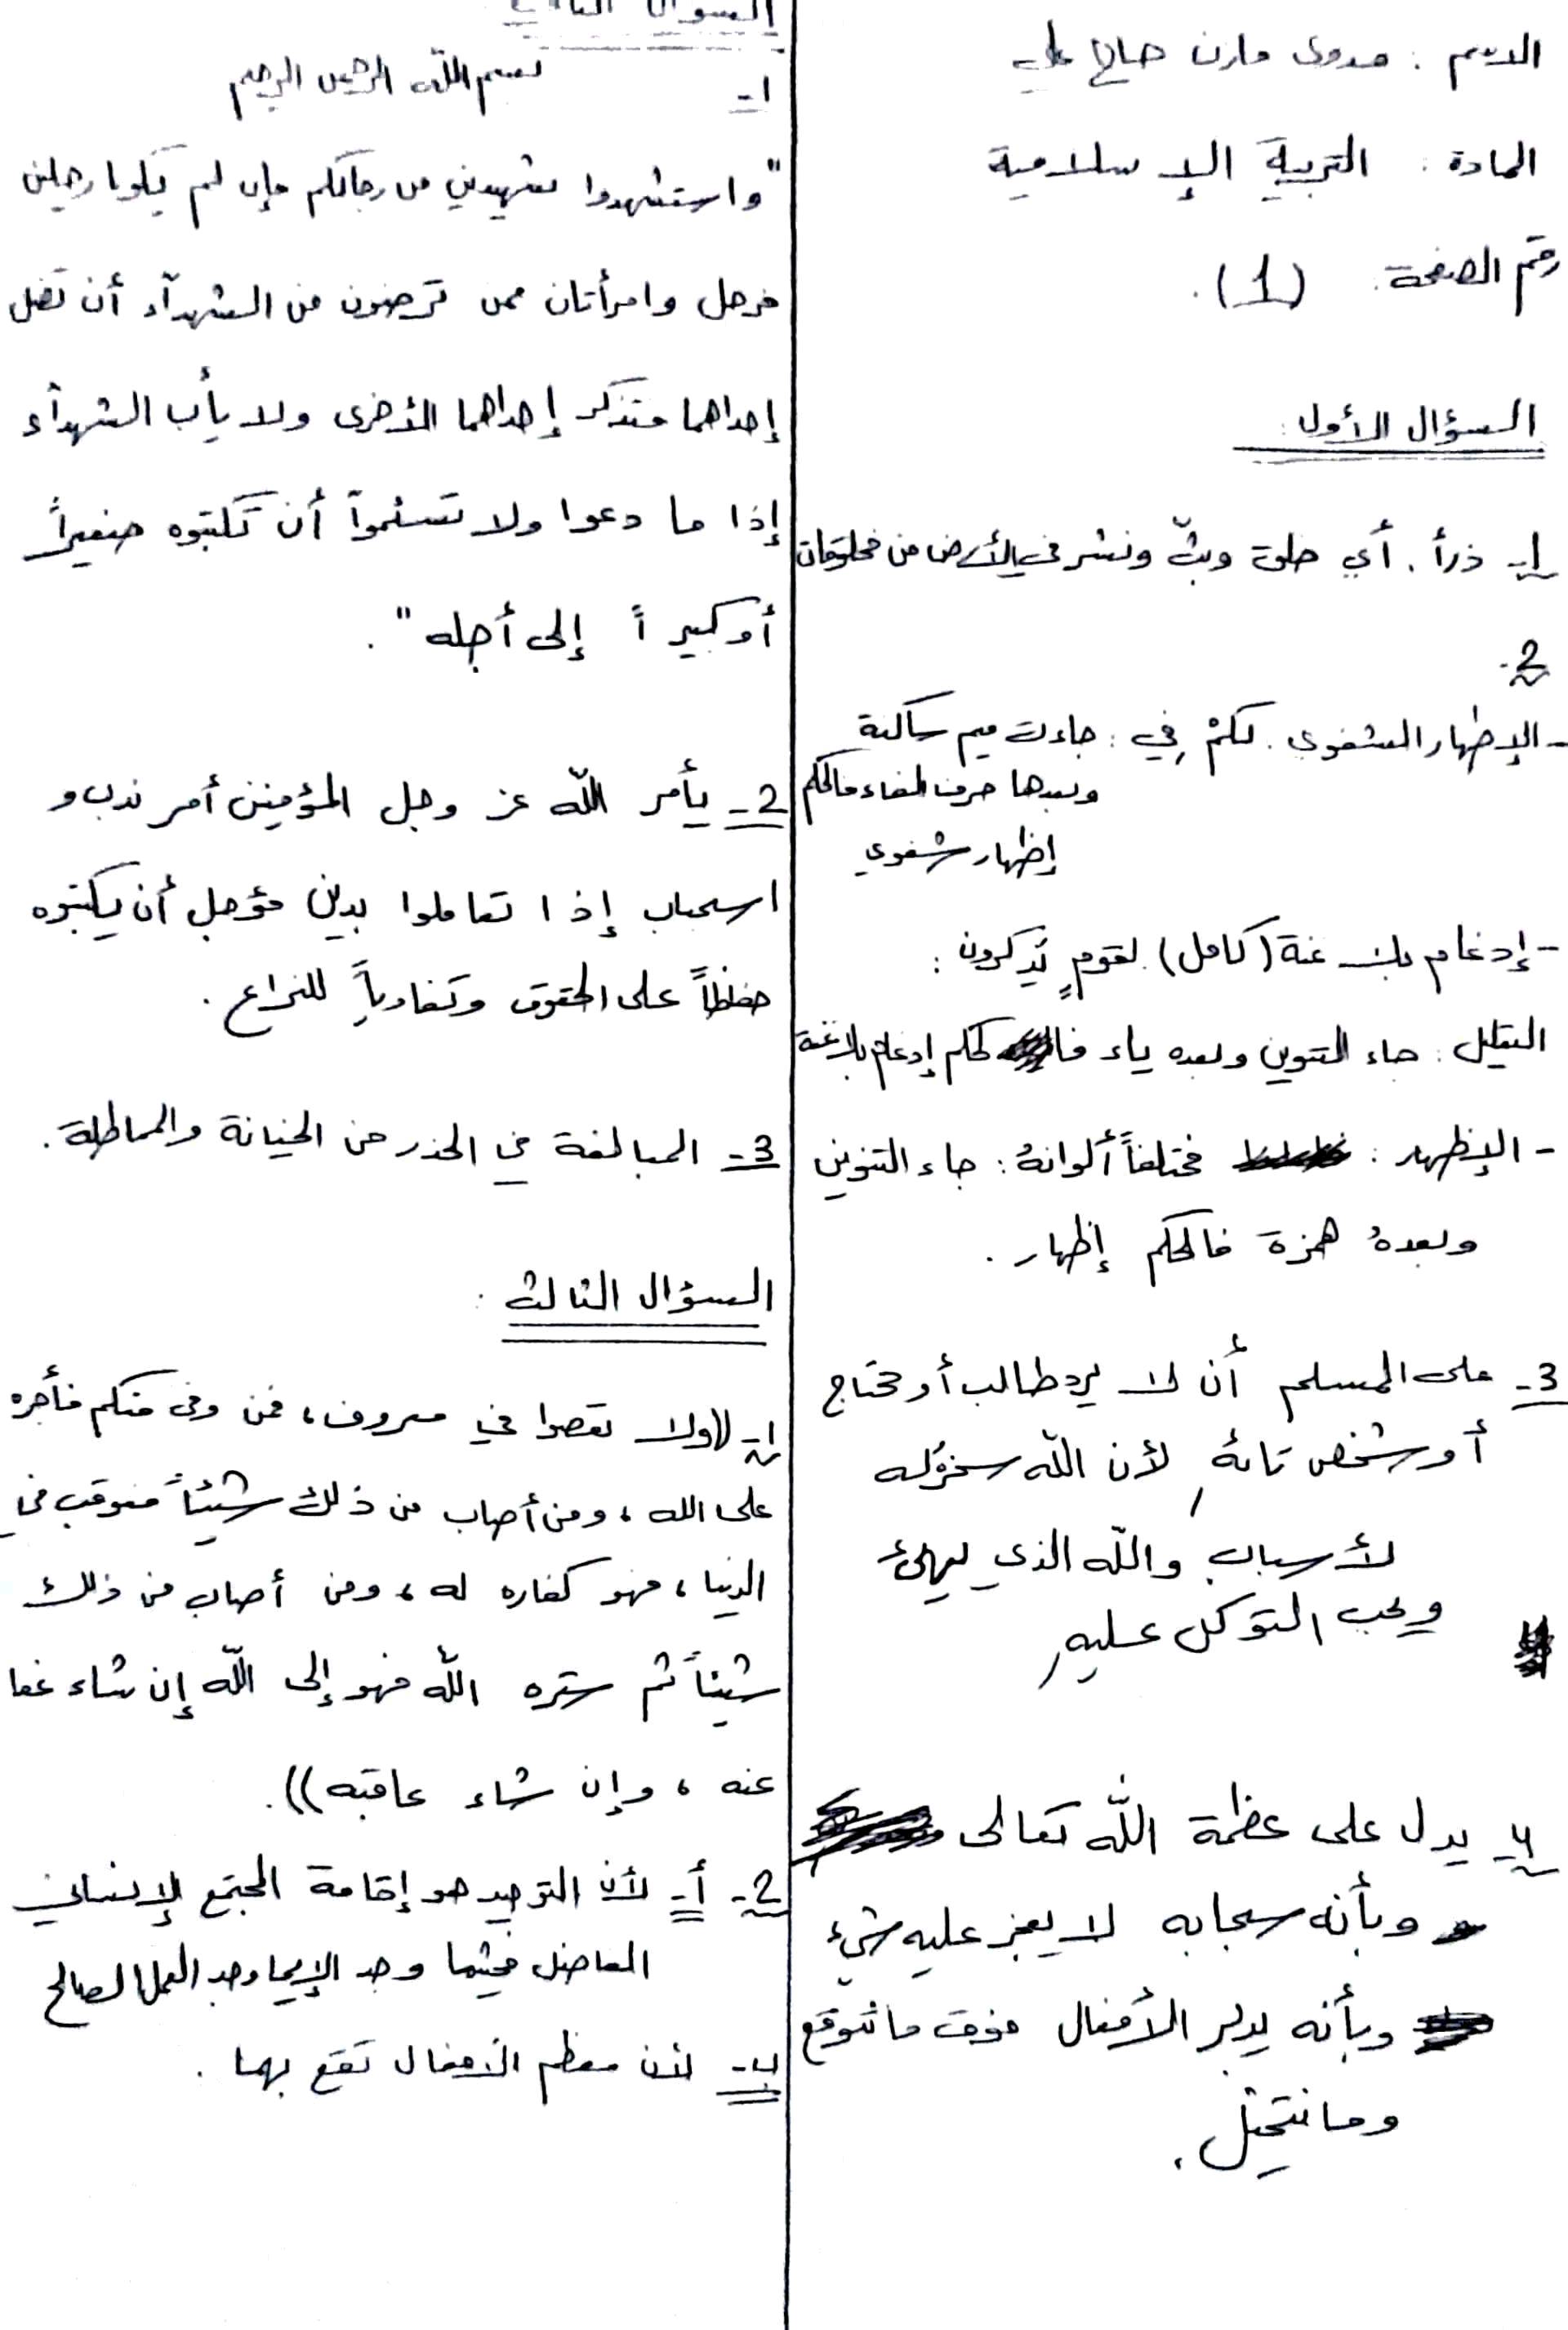 الاسم : مازن صالح علي
المادة : التربية الإسلامية
رقم الصفحة: (1).
السؤال الأول:
1- ذرأ. أي خلق وبثّ ونشر في الأرض من مخلوقات
2.
- الإظهار الشفوي. لكمْ في: جاءت ميم ساكنة
وبعدها حرف الفاء فالحكم
إظهار شفوي
- إدغام بلا غنة (كامل). لقومٍ يَذكرون:
التعليل: جاء التنوين وبعده ياء فا لحكم إدغام بلا غنة
- الإظهار: مختلفاً ألوانهُ: جاء التنوين
وبعدهُ همزة فالحكم إظهار.
3- على المسلم أن لا يرد طالب أو محتاج
أو شخص تائه لأن الله سخره له
لأسباب والله الذي يهيئ
ويحب التوكل عليه
4- يدل على عظمة الله تعالى
وبأنه سبحانه لا يعجز عليه شيء
وبأنه يدبر الأفعال فوق ما نتوقع
وما نتخيل.
السؤال الثاني
1- بسم الله الرحمن الرحيم
"واستشهدوا شهيدين من رجالكم فإن لم يكونا رجلين
فرجل وامرأتان ممن ترضون من الشهدآء أن تضل
إحداهما فتذكر إحداهما الأخرى ولا يأب الشهدآء
إذا ما دعوا ولا تسئموآ أن تكتبوه صغيراً
أو كبيراً إلى أجله".
2- يأمر الله عز وجل المؤمنين أمر ندب و
اسحباب إذا تعاملوا بدين مؤجل أن يكتبوه
حفاظاً على الحقوق وتفادياً للنزاع.
3- المبالغة في الحذر من الخيانة والمماطلة.
السؤال الثالث:
1- ((ولا تعصوا في معروف، فمن وفى منكم فأجره
على الله، ومن أصاب من ذلك شيئاً فعوقب في
الدنيا، فهو كفاره له، ومن أصاب من ذلك
شيئاً ثم ستره الله فهو إلى الله إن شاء عفا
عنه، وإن شاء عاقبه)).
2- أ- لأن التوحيد هو إقامة المجتمع الإنساني
الفاضل فحيثما وجد الإيما وجد العمل الصالح
ب- لأن معظم الأفعال تقع بهما.